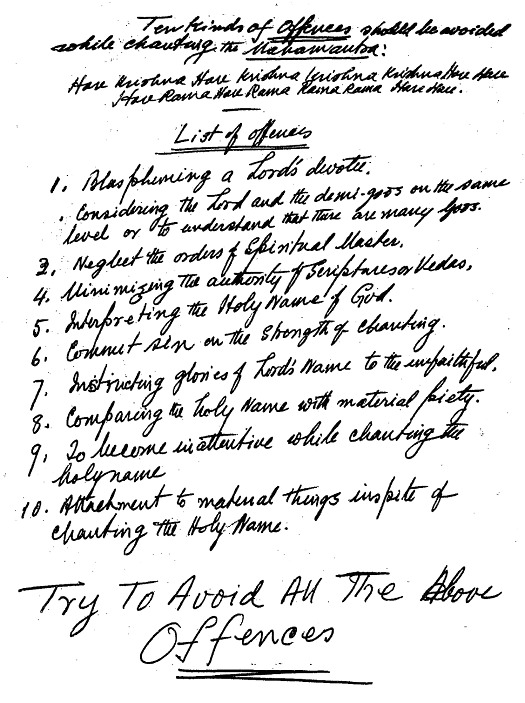 Ten Kinds of Offences should be avoided
while chanting the Mahamantra:
Hare Krishna Hare Krishna Krishna Krishna Hare Hare
Hare Rama Hare Rama Rama Rama Hare Hare.
List of offences
1. Blaspheming a Lord's devotee.
. Considering the Lord and the demi-gods on the same
level or to understand that there are many Gods.
3. Neglect the orders of Spiritual Master.
4. Minimizing the authority of Scriptures or Vedas.
5. Interpreting the Holy Name of God.
6. Commit sin on the Strength of chanting.
7. Instructing glories of Lord's Name to the unfaithful.
8. Comparing the holy Name with material piety.
9. To become inattentive while chanting the
holy name
10. Attachment to material things inspite of
chanting the Holy Name.
Try To Avoid All The Above
Offences